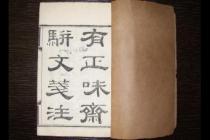 有正味齋
駢文箋注